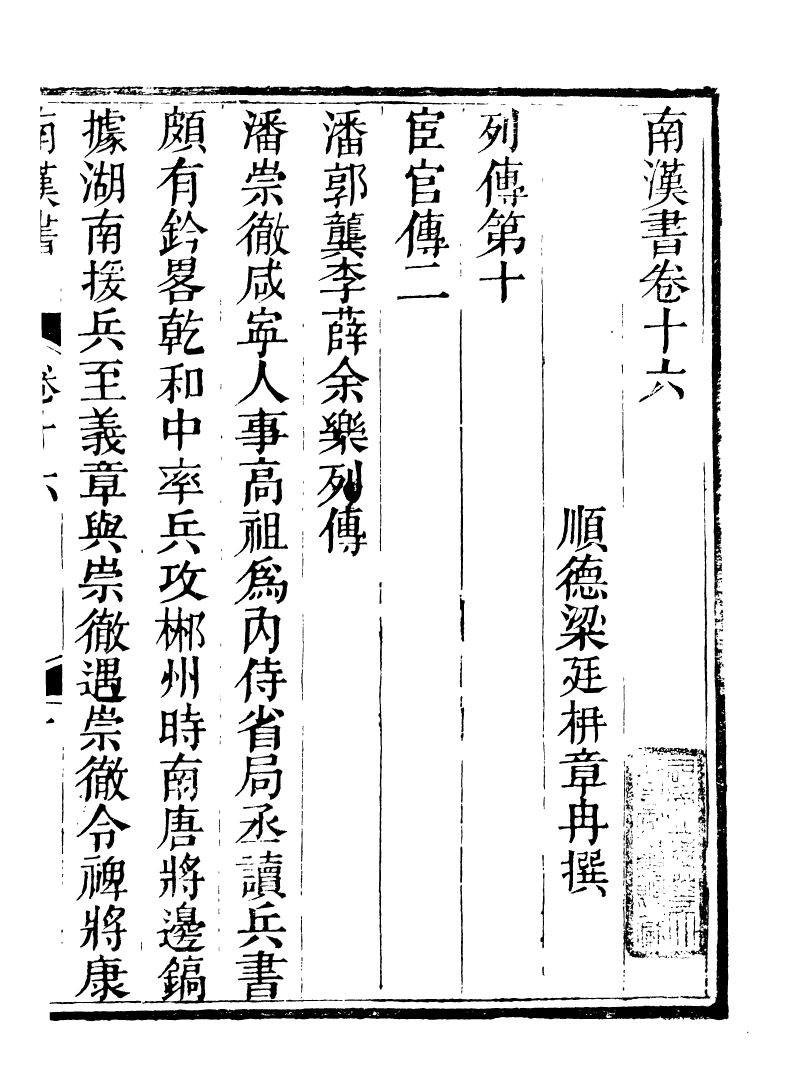 南漢書卷十六
順德梁廷枏章冉撰
列傳第十
宦官傳二
潘郭龔李薛余樂列傳
潘崇徹咸寍人事高祖爲內侍省局丞讀兵書
頗有鈐畧乾和中率兵攻郴州時南唐將邊鎬
據湖南援兵至義章與崇徹遇崇徹令裨將康
南漢書 卷十六 一